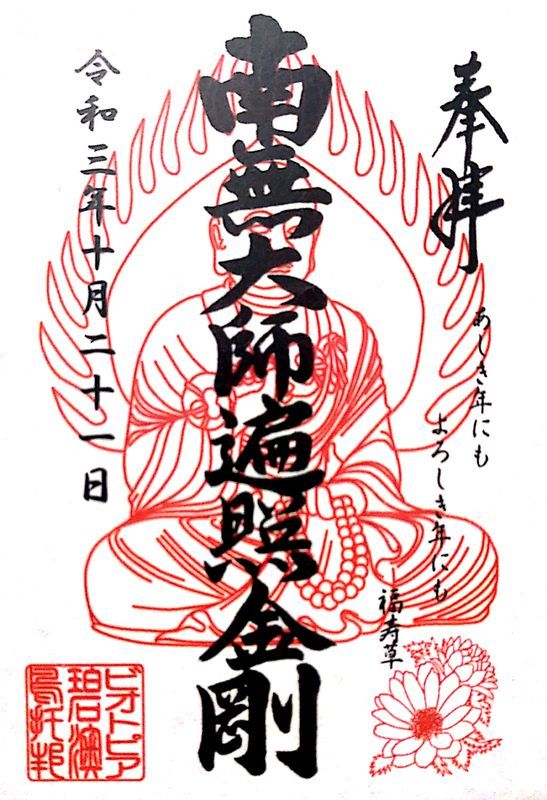 奉拝
あしき年にも
よろしき年にも
—福寿草
南無大師遍照金剛
令和三年十月二十一日
ビオトピア
烏托邦